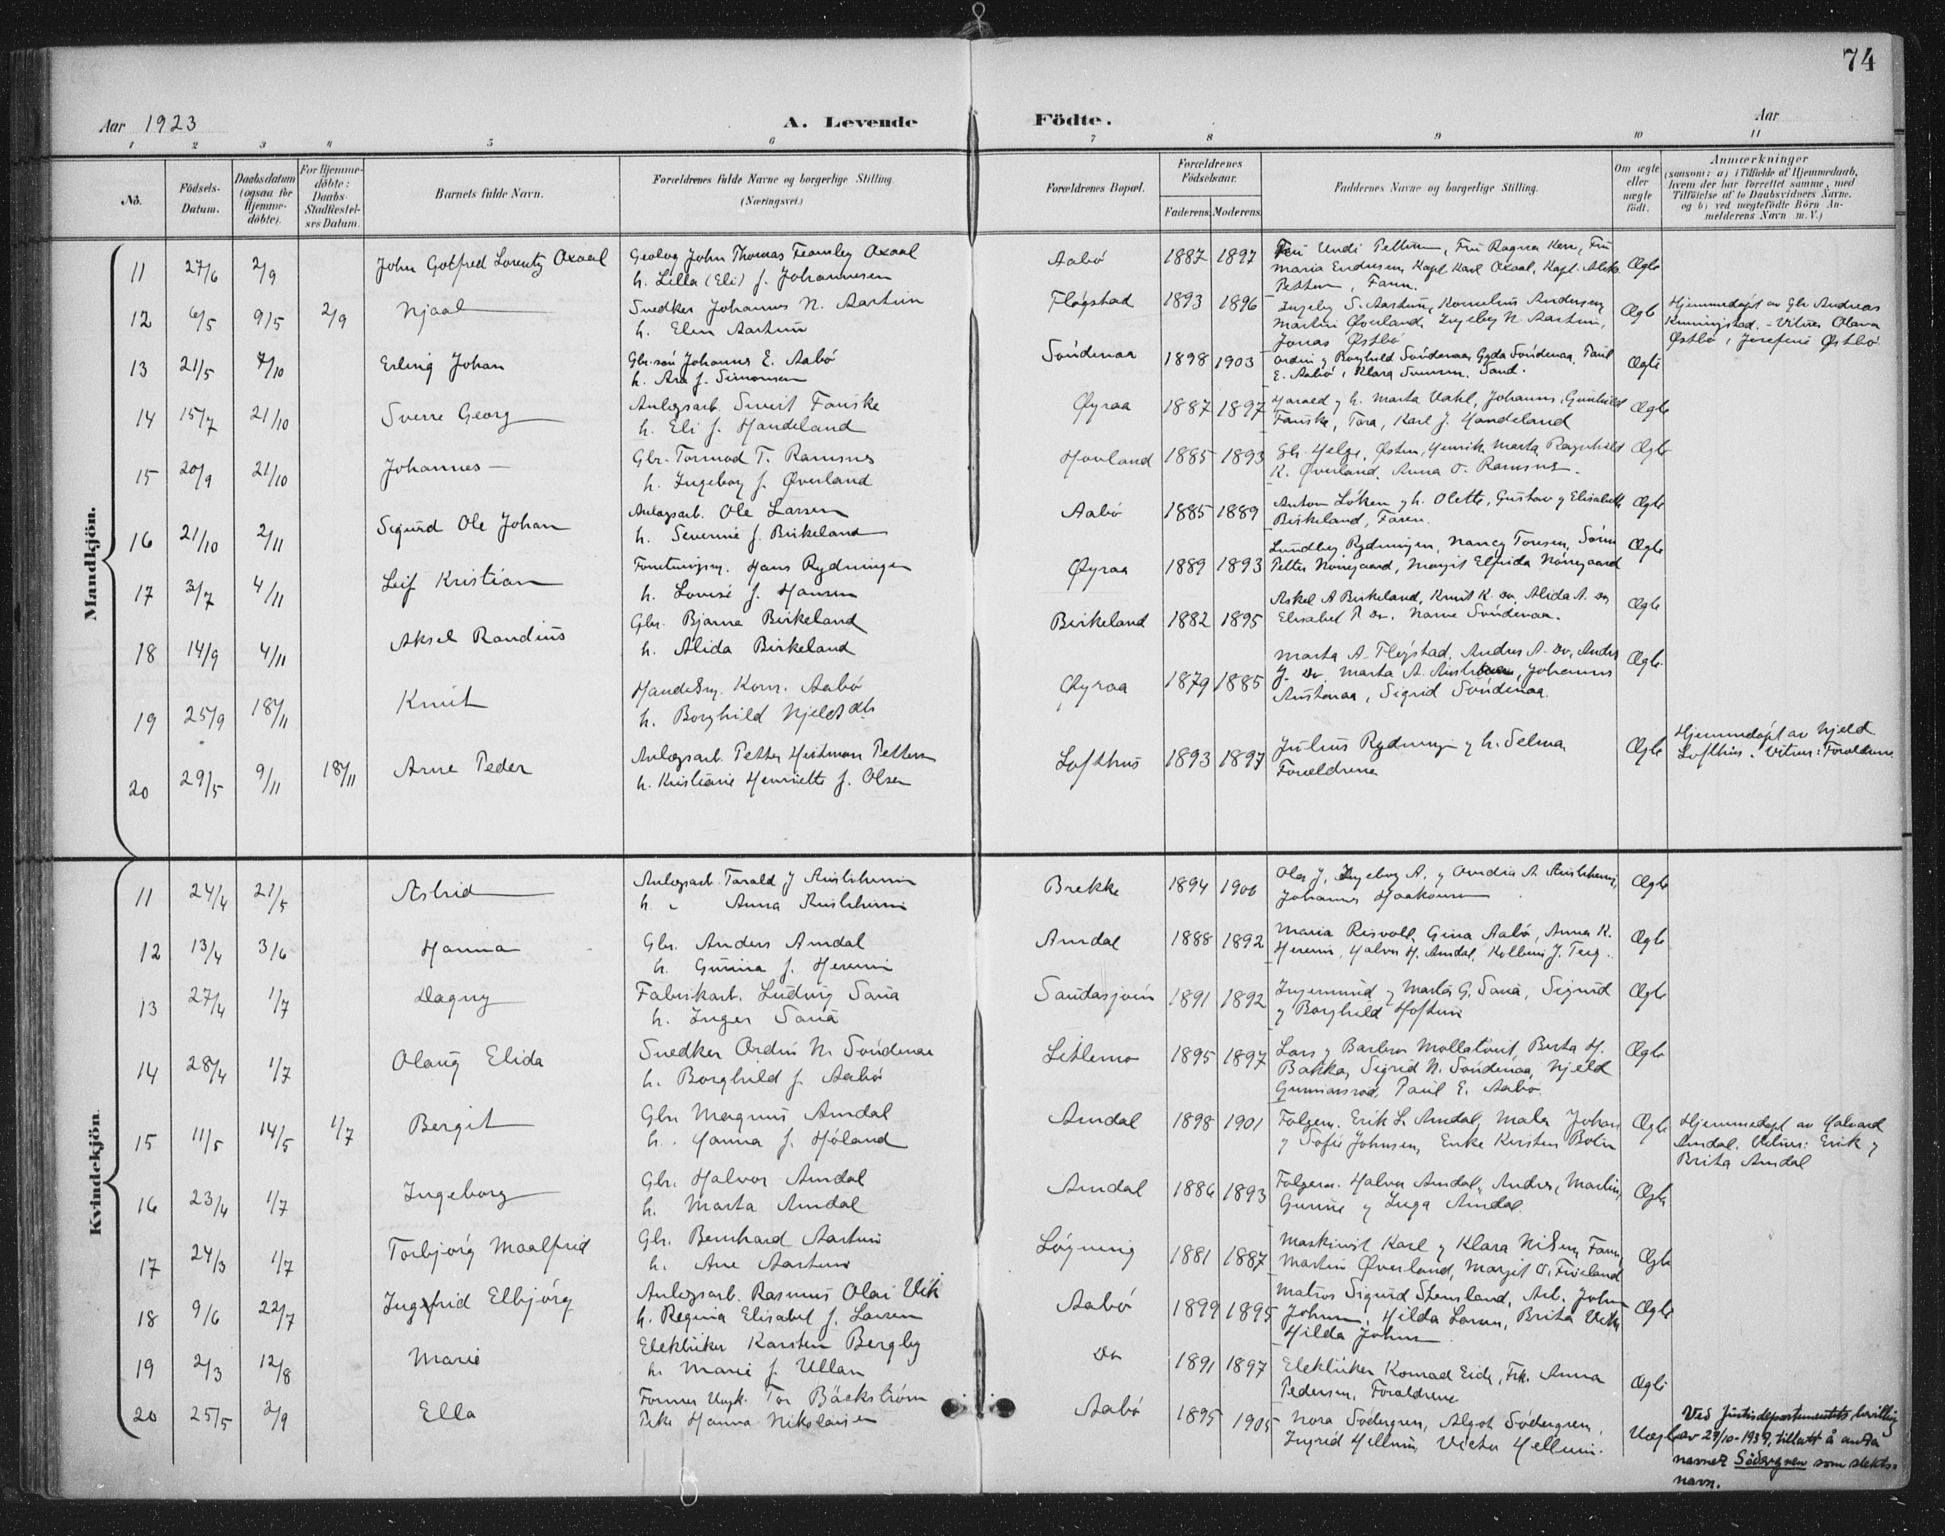 74
Aar 1923
A. Levende Födte.
Aar
1 2 3 4 5 6 7 8 9 10 11
No.
Födsels-
Datum.
Daabsdatum
(ogsaa for
Hjemme-
döbte).
For Hjemme-
döbte:
Daabs-
Stadfæstel-
ses Datum.
Barnets fulde Navn.
Forældrenes fulde Navne og borgerlige Stilling.
(Næringsvei.)
Forældrenes Bopæl.
Forældrenes
Födselsaar.
Faderens. Moderens.
Faddernes Navne og borgerlige Stilling.
Om ægte
eller
uægte
födt.
Anmærkninger
(saasom: a) i Tilfælde af Hjemmedaab,
hvem der har forrettet samme, med
Tilföielse af to Daabsvidners Navne.
og b) ved uægtefödte Börn An-
melderens Navn m. V.)
Mandkjön.
11 27/6 2/9 John Gotfred Lorentz Oxaal
Geolog John Thomas Fearnley Oxaal
h. Lilla (Eli) f. Johannesen
Aabö 1887 1897
Fru Undi Pettersen, Fru Ragna Kerr, Fru
Maria Endresen, Kapt. Karl Oxaal, Kapt.
Pettersen, Faren.
Ægte
12 6/5 9/5 2/9 Njaal
Snedker Johannes N. Aartun
h. Elen Aartun
Fløgstad 1893 1896
Ingeborg S. Aartun, Kornelius Andersen,
Martin Øverland, Ingeborg N. Aartun,
Jonas Østbø
Ægte
Hjemmedøpt av Gbr Andreas
- Vitner Olava
Østbø, Josefine Østbø
13 21/5 7/10 Erling Johan
Gbr.søn Johannes E. Aabö
h. Ara f. Simonsen
Söndenaa 1898 1903
Ordin og Borghild Söndenaa, Gyda Söndenaa, Paul
E. Aabö, Klara Svensen, Sand.
Ægte
14 15/7 21/10 Sverre Georg
Anlægsarb. Sivert Fanske
h. Eli f. Handeland
Øyraa 1887 1897
Harald og h. Marta Vahl, Johannes, Gunhild
Fanske, Tora, Karl J. Handeland
Ægte
15 20/9 21/10 Johannes
Gbr. Tormod T. Ramsnes
h. Ingeborg f. Øverland
Hovland 1885 1893
Gbr. Helge, Østen, Henrik, Marta, Ragnhild
K. Øverland, Anna O. Ramsnes.
Ægte
16 21/10 2/11 Sigurd Ole Johan
Anlægsarb. Ole Larsen
h. Severine f. Birkeland
Aabö 1885 1889
Anton Löken og h. Olette, Gustav og Elisabeth
Birkeland, Faren.
Ægte
17 3/7 4/11 Leif Kristian
Forretningsm. Hans Rydningen
h. Lovise f. Hansen
Øyraa 1889 1893
Lundberg Rydningen, Nancy Toresen, Sören
Petter Nörregaard, Margit Elfrida Nörregaard
Ægte
18 14/9 4/11 Aksel Randius
Gbr. Bjarne Birkeland
h. Alida Birkeland
Birkeland 1882 1895
Askel A Birkeland, Knut K. Do, Alida A. Do,
Elisabet P. Do. Narve Söndenaa.
Ægte
19 25/9 18/11 Knut
Handelsm. Korn. Aabö
h. Borghild Njeldsdtr
Øyraa 1879 1885
Marta A. Fløgstad, Andres A. Do, Anders
J. Do, Marta A. , Johannes
Austaraa, Sigrid Söndenaa.
Ægte
20 29/5 9/11 18/11 Arne Peder
Anlægsarb. Petter Hertman Pettersen
h. Kristiane Henriette f. Olsen
Lofthus 1893 1897
Julius Rydningen og h. Selma
Forældrene
Ægte
Hjemmedøpt av Njeld
Lofthus. Vitner: Forældrene
Kvindekjön
11 24/4 21/5 Astrid
Anlægsarb. Tarald J Austrheim
h. " Anna Austrheim
Brekke 1894 1900
Ola J, Ingeborg A. og Ovidia A. Austrheim,
Johannes Haakonsen
Ægte
12 13/4 3/6 Hanna
Gbr. Anders Amdal
h. Gunna f. Hereim
Amdal 1888 1892
Maria Risvoll, Gina Aabö, Anna K.
Hereim, Halvor H. Amdal, Kolbein J. Teig.
Ægte
13 27/4 1/7 Dagny
Fabrikarb. Ludvig Sana
h. Inger Sana
Saudasjøen 1891 1892
Ingemund og Marta G. Sana, Sigurd
og Borghild Hoftun
Ægte
14 28/4 1/7 Olaug Elida
Snedker Ordin N. Söndenaa
h. Borghild f. Aabö
Litlemo 1895 1897
Lars og Barbra Mollatveit, Berta H.
Bakka, Sigrid N. Söndenaa, Njeld
Gunnarsrod, Paul E. Aabö.
Ægte
15 11/5 14/5 1/7 Bergit
Gbr Magnus Amdal
h. Hanna f. Høland
Amdal 1898 1901
Folgem. Erik L. Amdal, Mala, Johan
og Sofie Johnsen, Enke Kirsten Botn
Ægte
Hjemmedøpt av Halvard
Amdal. Vitner: Erik og
Brita Amdal
16 23/4 1/7 Ingeborg
Gbr. Halvor Amdal
h. Marta Amdal
Amdal 1886 1893
Folgem. Halvor Amdal, Andres, Martin,
Gurine og Inga Amdal.
Ægte
17 24/3 1/7 Torbjörg Maalfrid
Gbr. Bernhard Aartun
h. Ane Aartun
Løgning 1881 1887
Maskinist Karl og Klara Nilsen, Faren,
Martin Øverland, Margit O. Fiveland
Ægte
18 9/6 22/7 Ingefrid Elbjörg
Anlægsarb. Rasmus Olai Vik
h. Regina Elisabet f. Larsen
Aabö 1899 1895
Matros Sigurd Stensland, Arb. Johan
Johnsen, Hilda Larsen, Brita Vik,
Hilda Johnsen
Ægte
19 2/3 12/8 Marie
Elektriker Karsten Bergby
h. Marie f. Ullan
Do 1891 1897
Elektriker Konrad Eide, Frk. Anna
Pedersen, Forældrene
Ægte
20 25/5 2/9 Ella
Former Ungk. Tor Bäckström
Pike Hanna Nikolaisen
Aabö 1895 1905
Nora Södergren, Algot Södergren,
Ingrid Hellum, Victor Hellum.
Uægte
Ved Justisdepartementets bevilling
av 29/10-1937, tillatt å anta
navnet Södergren som slekts-
navn.